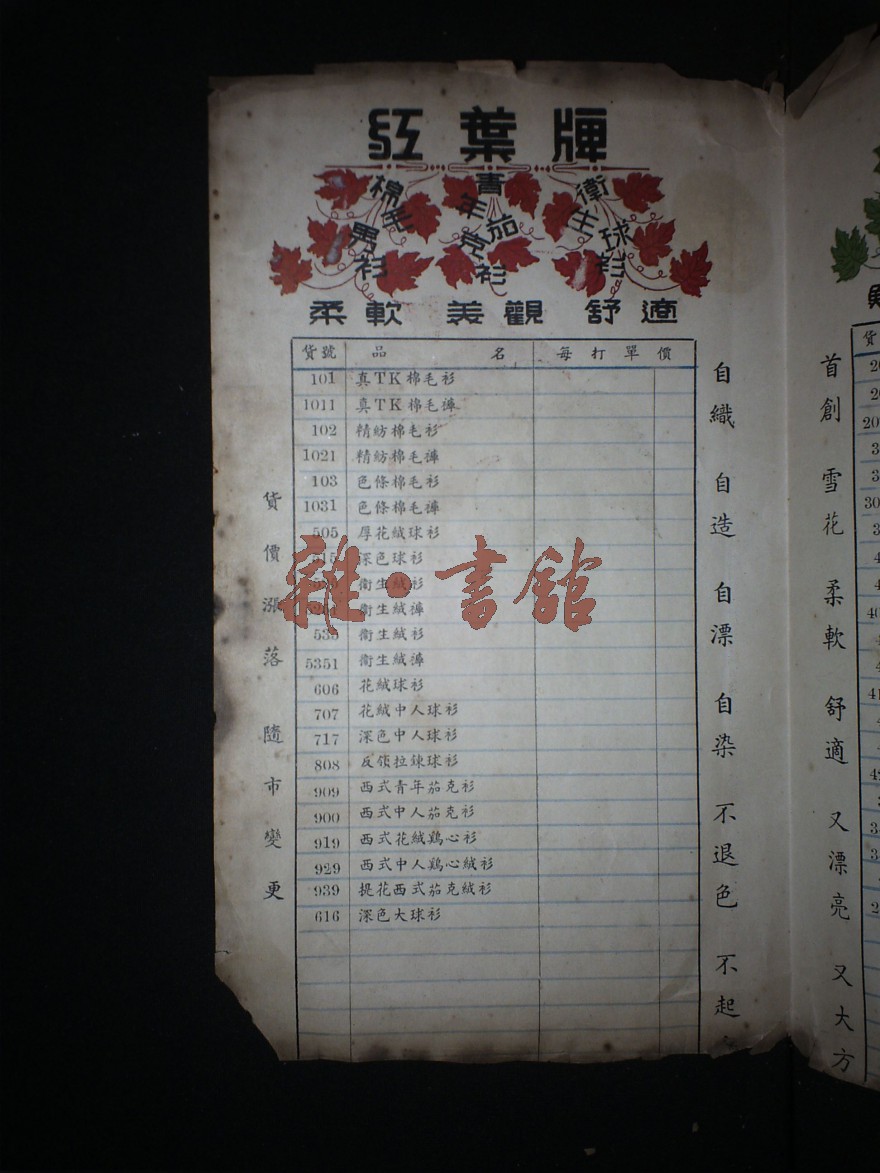 紅葉牌
棉毛男衫
青年茄克衫
衛生球衫
柔軟 美觀 舒適
貨號 品名 每打單價
101 真TK棉毛衫
1011 真TK棉毛褲
102 精紡棉毛衫
1021 精紡棉毛褲
103 色條棉毛衫
1031 色條棉毛褲
505 厚花絨球衫
515 深色球衫
衛生絨衫
衛生絨褲
535 衛生絨衫
5351 衛生絨褲
606 花絨球衫
707 花絨中人球衫
717 深色中人球衫
808 反領拉鍊球衫
909 西式青年茄克衫
900 西式中人茄克衫
919 西式花絨鷄心衫
929 西式中人鷄心絨衫
939 提花西式茄克絨衫
616 深色大球衫
貨價漲落 隨市變更
自織 自造 自漂 自染 不退色 不起
雜·書館
首創雪花 柔軟舒適 又漂亮 又大方
貨